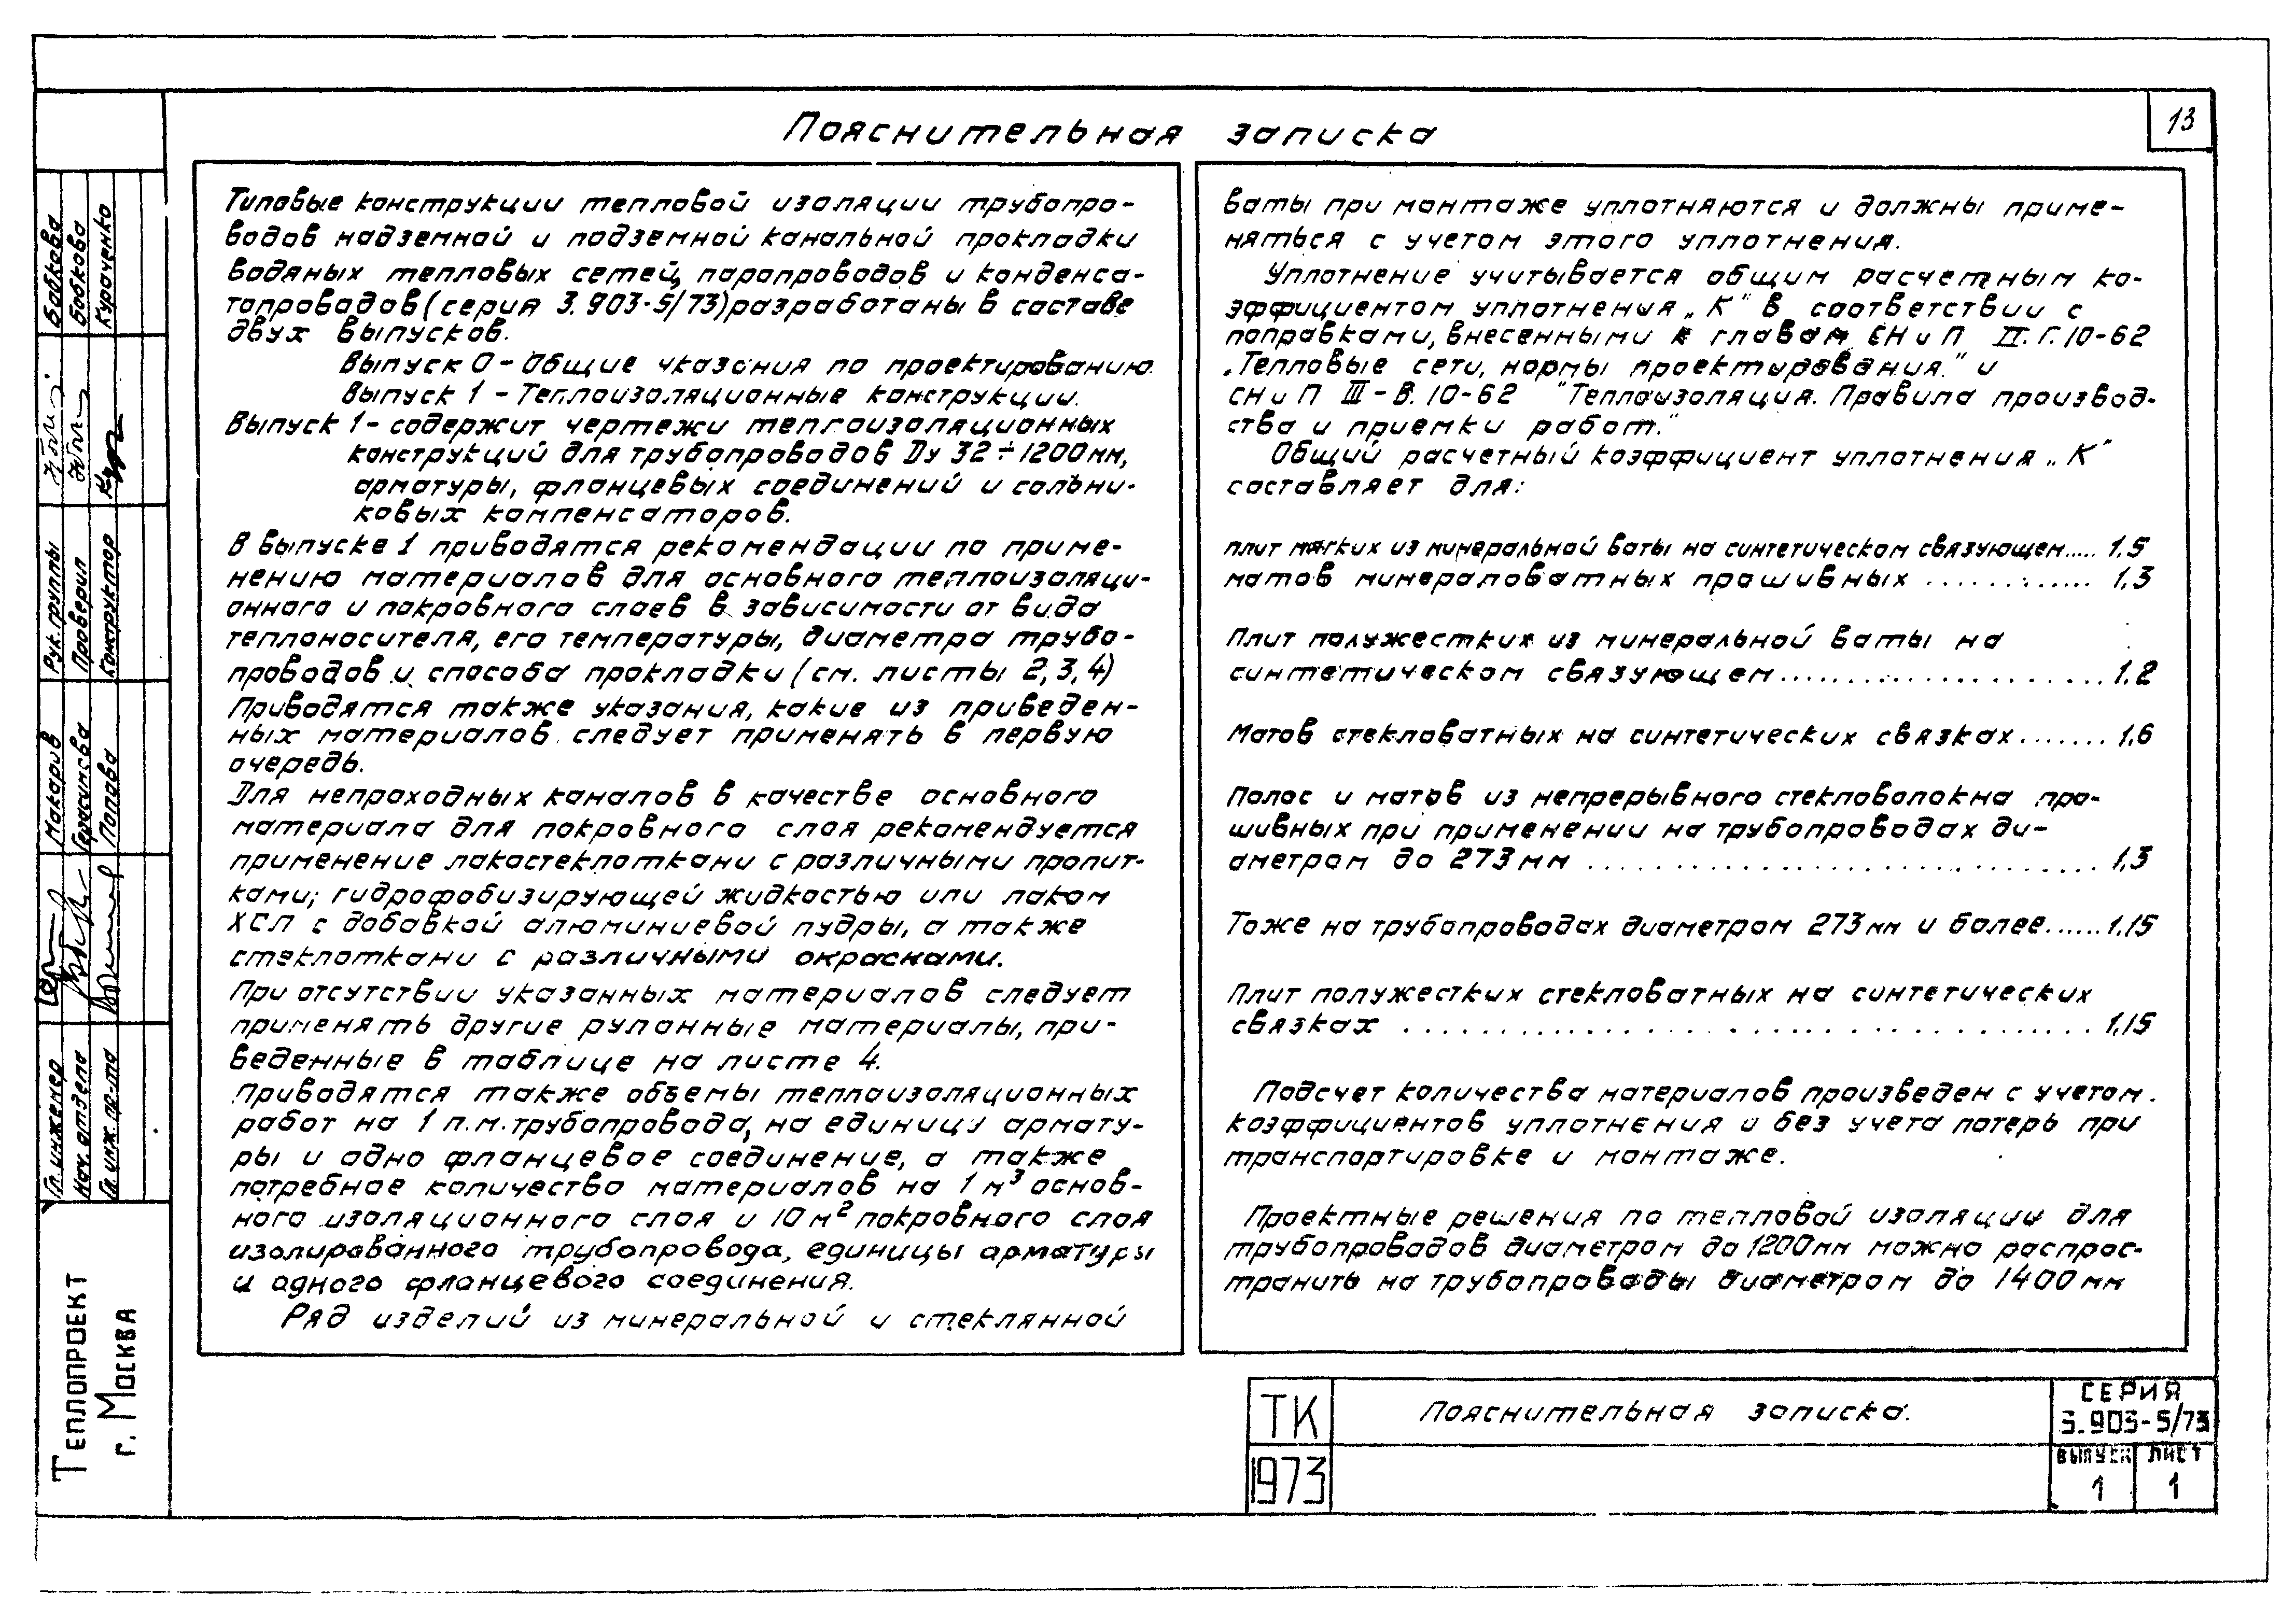 13
Пояснительная записка
Типовые конструкции тепловой изоляции трубопро-
водов надземной и подземной канальной прокладки
водяных тепловых сетей, паропроводов и конденса-
топроводов (серия 3.903-5/73) разработаны в составе
двух выпусков.
Выпуск 0 - Общие указания по проектированию.
Выпуск 1 - Теплоизоляционные конструкции.
Выпуск 1 - содержит чертежи теплоизоляционных
конструкций для трубопроводов Dу 32÷1200 мм,
арматуры, фланцевых соединений и сальни-
ковых компенсаторов.
В выпуске 1 приводятся рекомендации по приме-
нению материалов для основного теплоизоляци-
онного и покровного слоев в зависимости от вида
теплоносителя, его температуры, диаметра трубо-
проводов и способа прокладки (см. листы 2, 3, 4)
Приводятся также указания, какие из приведен-
ных материалов следует применять в первую
очередь.
Для непроходных каналов в качестве основного
материала для покровного слоя рекомендуется
применение лакостеклоткани с различными пропит-
ками; гидрофобизирующей жидкостью или лаком
ХСЛ с добавкой алюминиевой пудры, а также
стеклоткани с различными окрасками.
При отсутствии указанных материалов следует
применять другие рулонные материалы, при-
веденные в таблице на листе 4.
Приводятся также объемы теплоизоляционных
работ на 1 п.м. трубопровода, на единицу армату-
ры и одно фланцевое соединение, а также
потребное количество материалов на 1 м³ основ-
ного изоляционного слоя и 10 м² покровного слоя
изолированного трубопровода, единицы арматуры
и одного фланцевого соединения.
Ряд изделий из минеральной и стеклянной
ваты при монтаже уплотняются и должны приме-
няться с учетом этого уплотнения.
Уплотнение учитывается общим расчетным ко-
эффициентом уплотнения „К" в соответствии с
поправками, внесенными к главам СНиП II. Г. 10-62
„Тепловые сети, нормы проектирования." и
СНиП III-В. 10-62 "Теплоизоляция. Правила производ-
ства и приемки работ."
Общий расчетный коэффициент уплотнения „К"
составляет для:
плит мягких из минеральной ваты на синтетическом связующем..... 1,5
матов минераловатных прошивных ............ 1,3
Плит полужестких из минеральной ваты на
синтетическом связующем...................... 1,2
Матов стекловатных на синтетических связках....... 1,6
Полос и матов из непрерывного стекловолокна про-
шивных при применении на трубопроводах ди-
аметром до 273 мм .............................. 1,3
Тоже на трубопроводах диаметром 273 мм и более...... 1,15
Плит полужестких стекловатных на синтетических
связках ........................................ 1,15
Подсчет количества материалов произведен с учетом
коэффициентов уплотнения и без учета потерь при
транспортировке и монтаже.
Проектные решения по тепловой изоляции для
трубопроводов диаметром до 1200 мм можно распрос-
транить на трубопроводы диаметром до 1400 мм
Бабкова
Бабкова
Кураченко
Рук. группы
Проверил
Конструктор
Макаров
Герасимова
Попова
Гл. инженер
Нач. отдела
Гл. инж. пр-та
Теплопроект
г. Москва
ТК
1973
Пояснительная записка.
СЕРИЯ
3.903-5/73
выпуск
лист
1
1